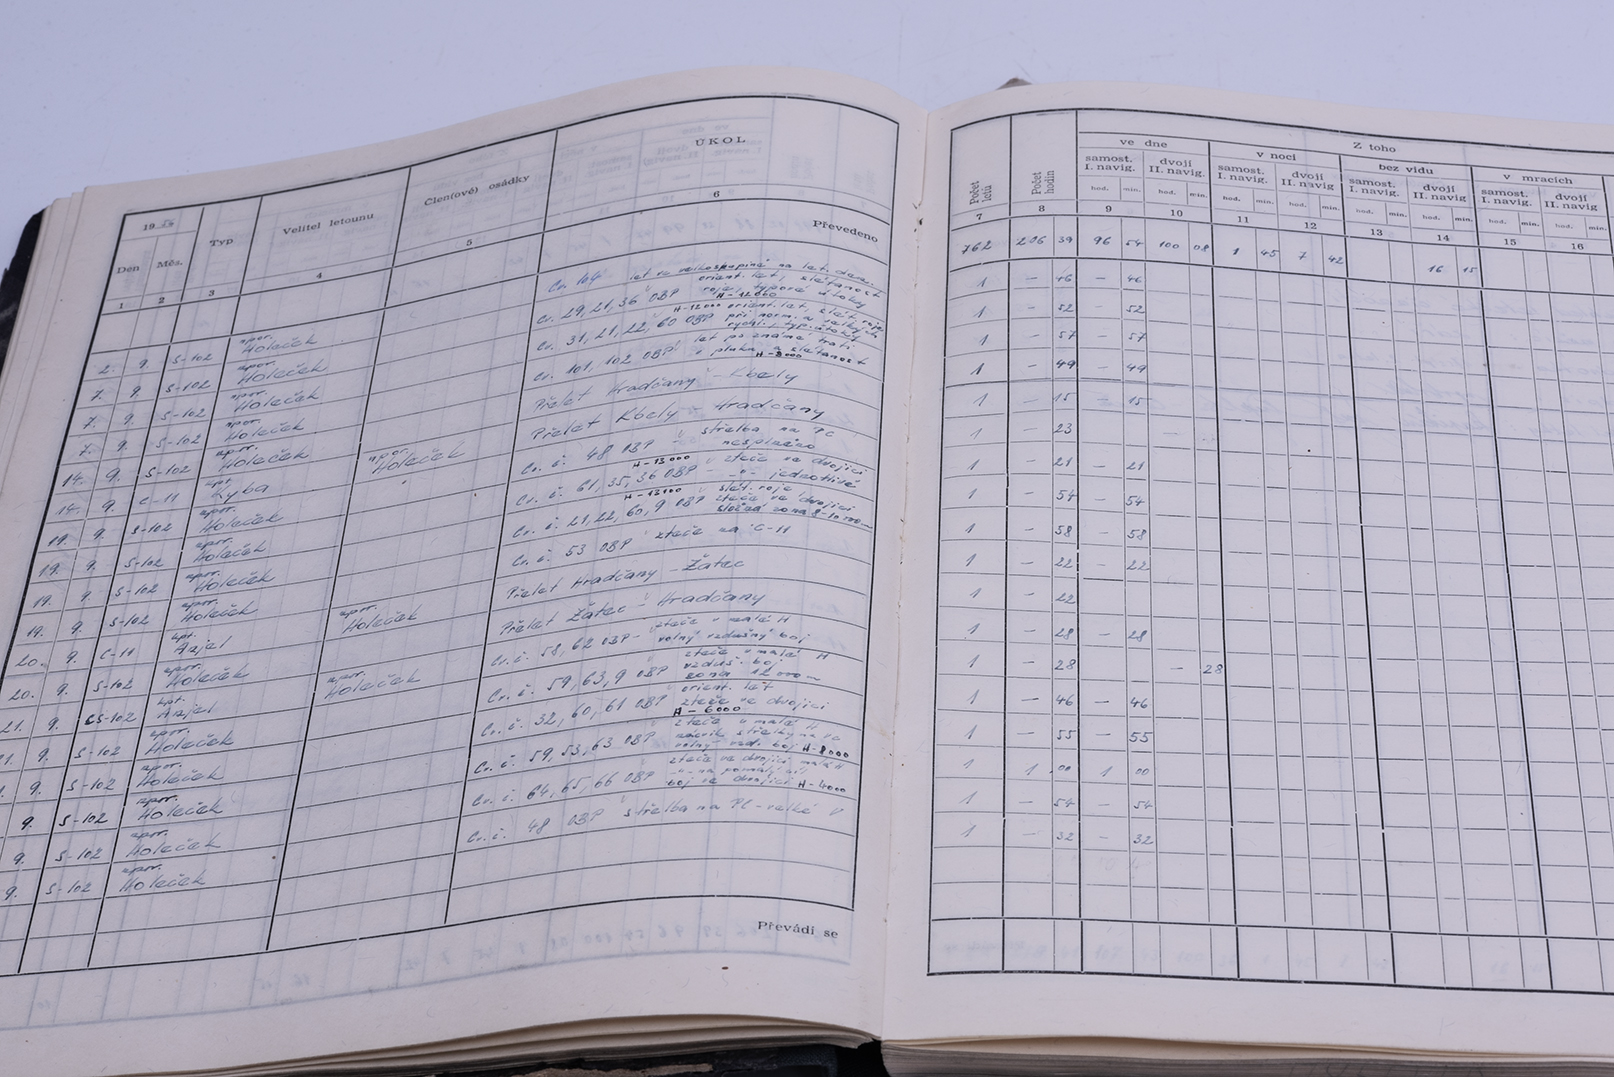 ÚKOL
19
Den
Měs.
Typ
Velitel letounu
Člen(ové) osádky
1 2 3 4 5 6
Převedeno
2. 9. S-102 npor. Holeček Cv. 104 let ve velkoskupině na let. dem.
7. 9. S-102 npor. Holeček Cv. 29, 21, 36 OBP orient. let, slétanost
roje, typové útoky
H-12000
7. 9. S-102 npor. Holeček Cv. 31, 21, 22, 60 OBP H-12000 orient. let, slét. roje
při norm. a velkých
rychl., typ. útoky
7. 9. S-102 npor. Holeček Cv. 101, 102 OBP let po známé trati
a slétanost
H-8000
14. 9. S-102 npor. Holeček Přelet Hradčany - Kbely
14. 9. C-11 Ryba npor. Holeček Přelet Kbely - Hradčany
19. 9. S-102 npor. Holeček Cv. č. 48 OBP střelba na PC
nesplněno
19. 9. S-102 npor. Holeček Cv. č. 61, 35, 36 OBP zteče ve dvojici
H-13000 -"- jednotlivě
19. 9. S-102 npor. Holeček Cv. č. 21, 22, 60, 9 OBP slét. roje
H-13100 zteče ve dvojici
19. 9. S-102 npor. Holeček Cv. č. 53 OBP zteče na C-11
20. 9. C-11 npor. Holeček Přelet Hradčany - Žatec
20. 9. S-102 npor. Holeček Přelet Žatec - Hradčany
21. 9. CS-102 npor. Holeček Cv. č. 58, 62 OBP - zteče v malé H
volný vzdušný boj
9. S-102 npor. Holeček Cv. č. 59, 63, 9 OBP zteče v malé H
vzduš. boj
zona 12000m
9. S-102 npor. Holeček Cv. č. 32, 60, 61 OBP orient. let
zteče ve dvojici
H-6000
9. S-102 npor. Holeček Cv. č. 59, 53, 63 OBP zteče v malé H
volný vzd. boj H-8000
9. S-102 npor. Holeček Cv. č. 64, 65, 66 OBP zteče ve dvojici malé H
boj ve dvojici H-4000
9. S-102 npor. Holeček Cv. č. 48 OBP střelba na Pl-velké V
Převádí se
Počet letů
Počet hodin
Z toho
ve dne
v noci
bez vidu
v mracích
samost. I. navig.
dvojí II. navig.
samost. I. navig.
dvojí II. navig
samost. I. navig.
dvojí II. navig
samost. I. navig.
dvojí II. navig
hod. min. hod. min. hod. min. hod. min. hod. min. hod. min. hod. min. hod.
7 8 9 10 11 12 13 14 15 16
762 206 39 96 54 100 08 1 45 7 42 16 15
1 - 46 - 46
1 - 52 - 52
1 - 57 - 57
1 - 49 - 49
1 - 15 - 15
1 - 23 -
1 - 21 - 21
1 - 54 - 54
1 - 58 - 58
1 - 22 - 22
1 - 22
1 - 28 - 28
1 - 28 - 28
1 - 46 - 46
1 - 55 - 55
1 1 00 1 00
1 - 54 - 54
1 - 32 - 32